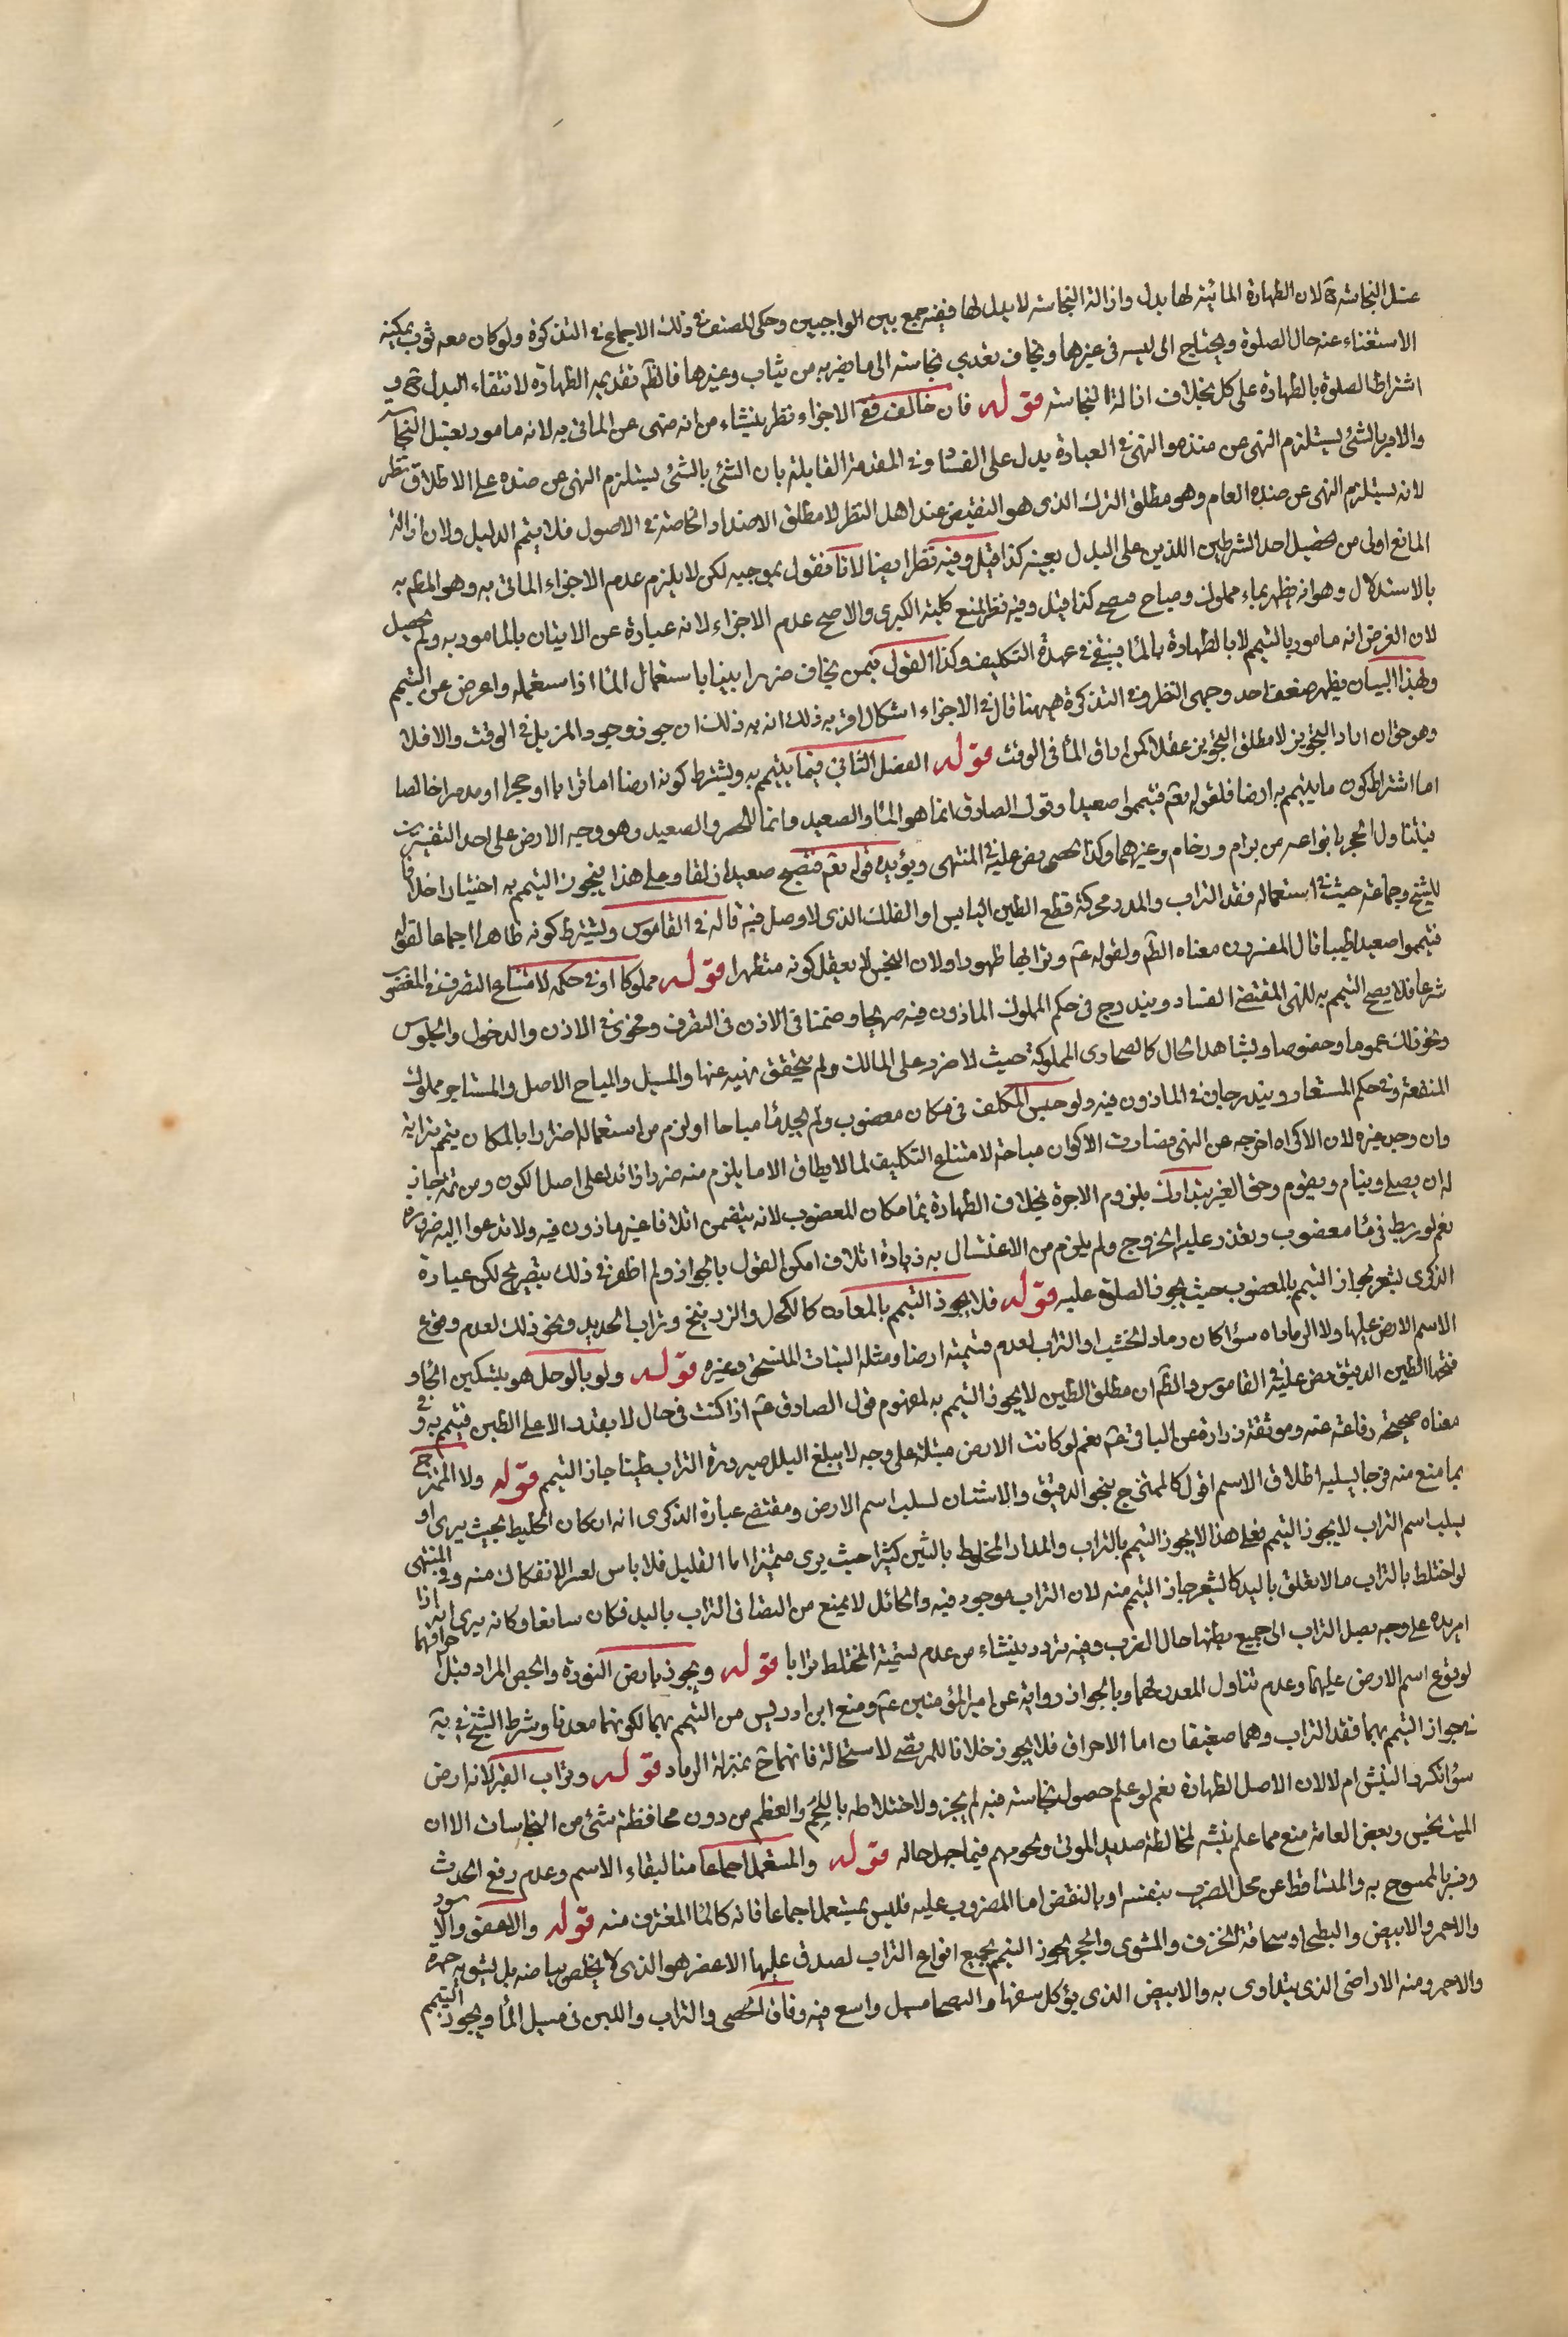 غسل النجاسة لان الطهارة المائية لها بدل وازالة النجاسة لا بدل لها ففيه جمع بين الواجبين وحكى المصنف في ذلك الاجماع في التذكرة ولو كان معه ثوب يمكنه
الاستغناء عنه حال الصلوة ويحتاج الى لبسه في غيرها ويخاف تعدي نجاسته الى ما يضر به من ثياب وغيرها فالظم تقديم الطهارة لانتفاء البدل
اشتراط الصلوة بالطهارة على كل بخلاف ازالة النجاسة قوله فان خالف ففي الاجزاء نظر ينشاء من انه منهى عن الماتى به لانه مامور بغسل النجاسة
والامر بالشئ يستلزم النهى عن ضده والنهى في العبادة يدل على الفساد وفي المقدمة القايلة بان الشئ بالشئ يستلزم النهى عن ضده على الاطلاق نظر
لانه يستلزم النهى عن ضده العام وهو مطلق الترك الذى هو النقيض عند اهل النظر لا مطلق الاضداد الخاصة في الاصول فلا يتم الدليل ولان ازالة
المانع اولى من تحصيل احد الشرطين اللذين على البدل بعينه كذا قيل وفيه نظر ايضا لانا نقول بموجبه لكن لا يلزم عدم الاجزاء الماتى به وهو المظم به
بالاستدلال وهو انه تطهر بماء مملوك ومباح فيصح كذا قيل وفيه نظر لمنع كلية الكبرى والاصح عدم الاجزاء لانه عبارة عن الاتيان بالمامور به ولم يحصل
لان الفرض انه مامور بالتيمم لا بالطهارة بالماء فيبقى في عهدة التكليف وكذا القول فيمن يخاف ضررا بينا باستعمال الماء اذا استعمله واعرض عن التيمم
وبهذا البيان يظهر ضعف احد وجهى النظر وفي التذكرة ههنا قال في الاجزاء اشكال اقربه ذلك انه به ذلك ان جوز وجود المزيل في الوقت والا فلا
وهو حق ان اراد التجويز لا مطلق التجويز عقلا كمن اراق الماء في الوقت قوله الفصل الثاني فيما يتيمم به ويشترط كونه ارضا اما ترابا او حجرا او مدرا خالصا
اما اشتراط كون ما يتيمم به ارضا فلقوله تعم فتيمموا صعيدا وقول الصادق انما هو الماء والصعيد وانما للحصر والصعيد وهو وجه الارض على احد التفسيرين
فيتناول الحجر بانواعه من برام ورخام وغيرهما وكذا الحصى نص عليه في المنتهى ويؤيده قوله تعم فتصبح صعيدا زلقا وعلى هذا فيجوز التيمم به اختيارا خلافا
للشيخ وجماعة حيث في استعماله فقد التراب والمدر محركة قطع الطين اليابس او العلك الذى لا رمل فيه قاله في القاموس ويشترط كونه طاهرا اجماعا لقوله
فتيمموا صعيدا طيبا قال المفسرون معناه الظم ولقوله عم وترابها طهورا ولان النجس لا يعقل كونه مطهرا قوله مملوكا او في حكمه لامتناع التصرف في المغصوب
شرعا فلا يصح التيمم به للنهى المقتضى الفساد ويندرج في حكم المملوك الماذون فيه صريحا وضمنا في الاذن في التصرف ونحوى في الاذن والدخول والجلوس
ونحو ذلك عموما وخصوصا ويشاهد الحال كالصحارى المملوكة حيث لا ضرر على المالك ولم يتحقق نهيه عنها والمسبل والمباح الاصل والمستاجر مملوك
المنفعة وفي حكم المستعار ويندرجان في الماذون فيه ولو حبس المكلف في مكان مغصوب ولم يجد ماء مباحا او لزم من استعماله اضرارا بالمكان تيمم بترابه
وان وجد غيره لان الاكراه اخرجه عن النهى فصارت الاكوان مباحة لامتناع التكليف لما لا يطاق الا ما يلزم منه ضررا زائدا على اصل الكون ومن ثمة جاز
له ان يصلى وينام ويقوم وحق الغير يتدارك بلزوم الاجرة بخلاف الطهارة بماء مكان المغصوب لانه يتضمن اتلافا غير ماذون فيه ولا تدعوا اليه ضرورة
نعم لو ربط في ماء مغصوب وتعذر عليه الخروج ولم يلزم من الاغتسال به زيادة اتلاف امكن القول بالجواز ولم اظفر في ذلك بتصريح لكن عبارة
الذكرى يشعر بجواز التيمم بالمغصوب حيث يجوز الصلوة عليه قوله فلا يجوز التيمم بالمعادن كالكحل والزرنيخ وتراب الحديد ونحو ذلك لعدم وقوع
الاسم الارض عليها ولا الرماد اه سواء كان رماد الخشب او التراب لعدم تسميته ارضا ومثله النبات المنسحق وغيره قوله ولو بالوحل هو بتسكين الحاء و
فتحها الطين الدقيق نص عليه في القاموس والظم ان مطلق الطين لا يجوز التيمم به لمفهوم قول الصادق عم اذا كنت في حال لا يقدر الا على الطين فتيمم به وفي
معناه صحيحة رفاعة عنه وموثقة زرارة عن الباقر عم نعم لو كانت الارض مبتلة على وجه لا يبلغ البلل صيرورة التراب طينا جاز التيمم قوله ولا الممتزج
بما منع منه مزجا يسلبه اطلاق الاسم اقول كالممتزج بنحو الدقيق والاشنان لسلب اسم الارض ومقتضى عبارة الذكرى انه ان كان الخليط بحيث يرى او
يسلب اسم التراب لا يجوز التيمم فعلى هذا لا يجوز التيمم بالتراب والمدار المخلوط بالتبن كثيرا حيث يرى متميزا اما القليل فلا باس لعسر الانفكاك منه وفي المنتهى
لو اختلط بالتراب ما لا يعلق باليد كالشعير جاز التيمم منه لان التراب موجود فيه والحائل لا يمنع من التصاق التراب باليد فكان سائغا وكانه يرى انه اذا
امر يده على وجه يصل التراب الى جميع بطنها حال الضرب وفيه تردد ينشاء من عدم تسمية المختلط ترابا قوله ويجوز بارض النورة والجص المراد قبل حرقهما
لوقوع اسم الارض عليهما وعدم تناول المعدن لهما وبالجواز رواية عن امير المؤمنين عم ومنع ابن ادريس من التيمم بهما لكونهما معدنا وشرط الشيخ في ية
في جواز التيمم بهما فقد التراب وهما ضعيفان اما الاحراق فلا يجوز خلافا للمرتضى لاستحالة فانهما ح بمنزلة الرماد قوله وتراب القبر لانه ارض
سواء تكرر النبش ام لا لان الاصل الطهارة نعم لو علم حصول نجاسة فيه لم يجز ولاختلاطه باللحم والعظم من دون مخافظة شئ من النجاسات الا ان
الميت نجس وبعض العامة منع مما علم نبشه لمخالطة صديد الموتى ولحومهم فيما جهل حاله قوله والمستعمل اجماعا منا لبقاء الاسم وعدم رفع الحدث
وفسر بالممسوح به والمتساقط عن محل الضرب بنفسه او بالنقض اما المضروب عليه فليس بمستعمل اجماعا فانه كالماء المغترف منه قوله والاعفر والاسود
والاحمر والابيض والبطحاء وسحاقة الخزف والمشوى والحجر يجوز التيمم بجميع انواع التراب لصدق عليها الاعفر هو الذى لا يخلص بياضه بل يشوبه حمرة
والاحمر ومنه الاراضى الذى يتداوى به والابيض الذى يؤكل سفها والبطحا مسيل واسع فيه دقاق الحصى والتراب واللين في مسيل الماء ويجوز التيمم